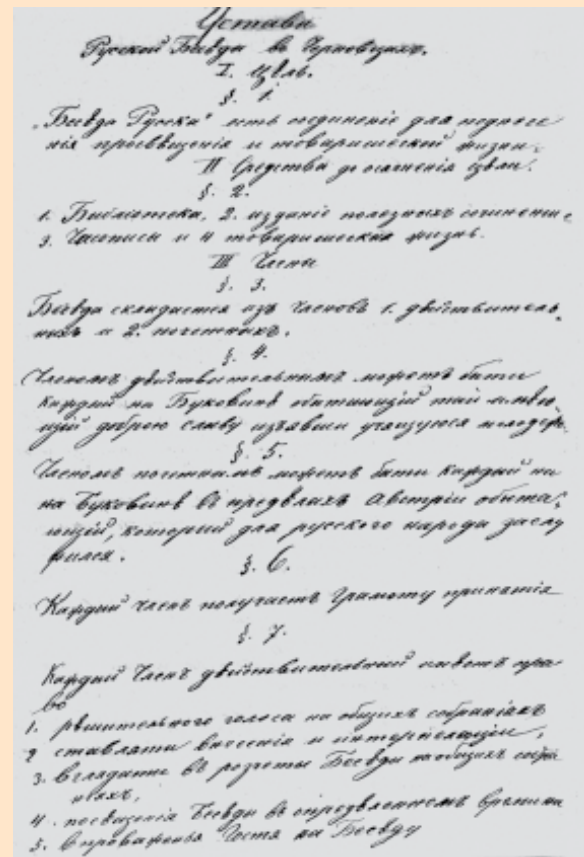 Уставы
Русской Бесѣды въ Черновцяхъ.
I. Цѣль.
§. 1.
„Бесѣда Русска" есть соединеніе для поднесе
нія просвѣщенія и товаришеской жизни.
II Средства до осягненія цѣли.
§. 2.
1. Библіотека, 2. изданіе полезныхъ сочиненій
3. Часописы и 4 товаришеская жизнь.
III Члены
§. 3.
Бесѣда складается изъ членовъ 1. дѣйствитель
ныхъ и 2. почетныхъ.
§. 4.
Членомъ дѣйствительнымъ можетъ бути
каждый на Буковинѣ обитающій
щій доброю славу изъявши учащуюся молодежь
§. 5.
Членомъ почетнымъ можетъ бути каждый
на Буковинѣ въ предѣлахъ Австріи обита
ющій, который для русского народа заслу
жился.
§. 6.
Каждый членъ получаетъ грамоту принятія
§. 7.
Каждый Членъ дѣйствительный имѣетъ пра
во
1. рѣшительного голоса на общихъ собраніахъ
2 ставляти внесенія и интерпеляціи,
3. вглядати въ розчеты Бесѣды на общихъ собра
ніяхъ,
4. посѣщенія Бесѣды въ опредѣленномъ времени
5. впроваженья Гостя на Бесѣду